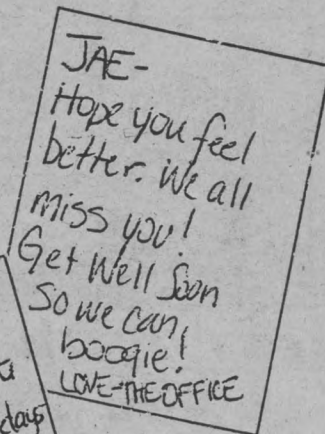 JAE-
Hope you feel
better. We all
miss you!
Get Well Soon
So we can
boogie!
LOVE-THE OFFICE
days